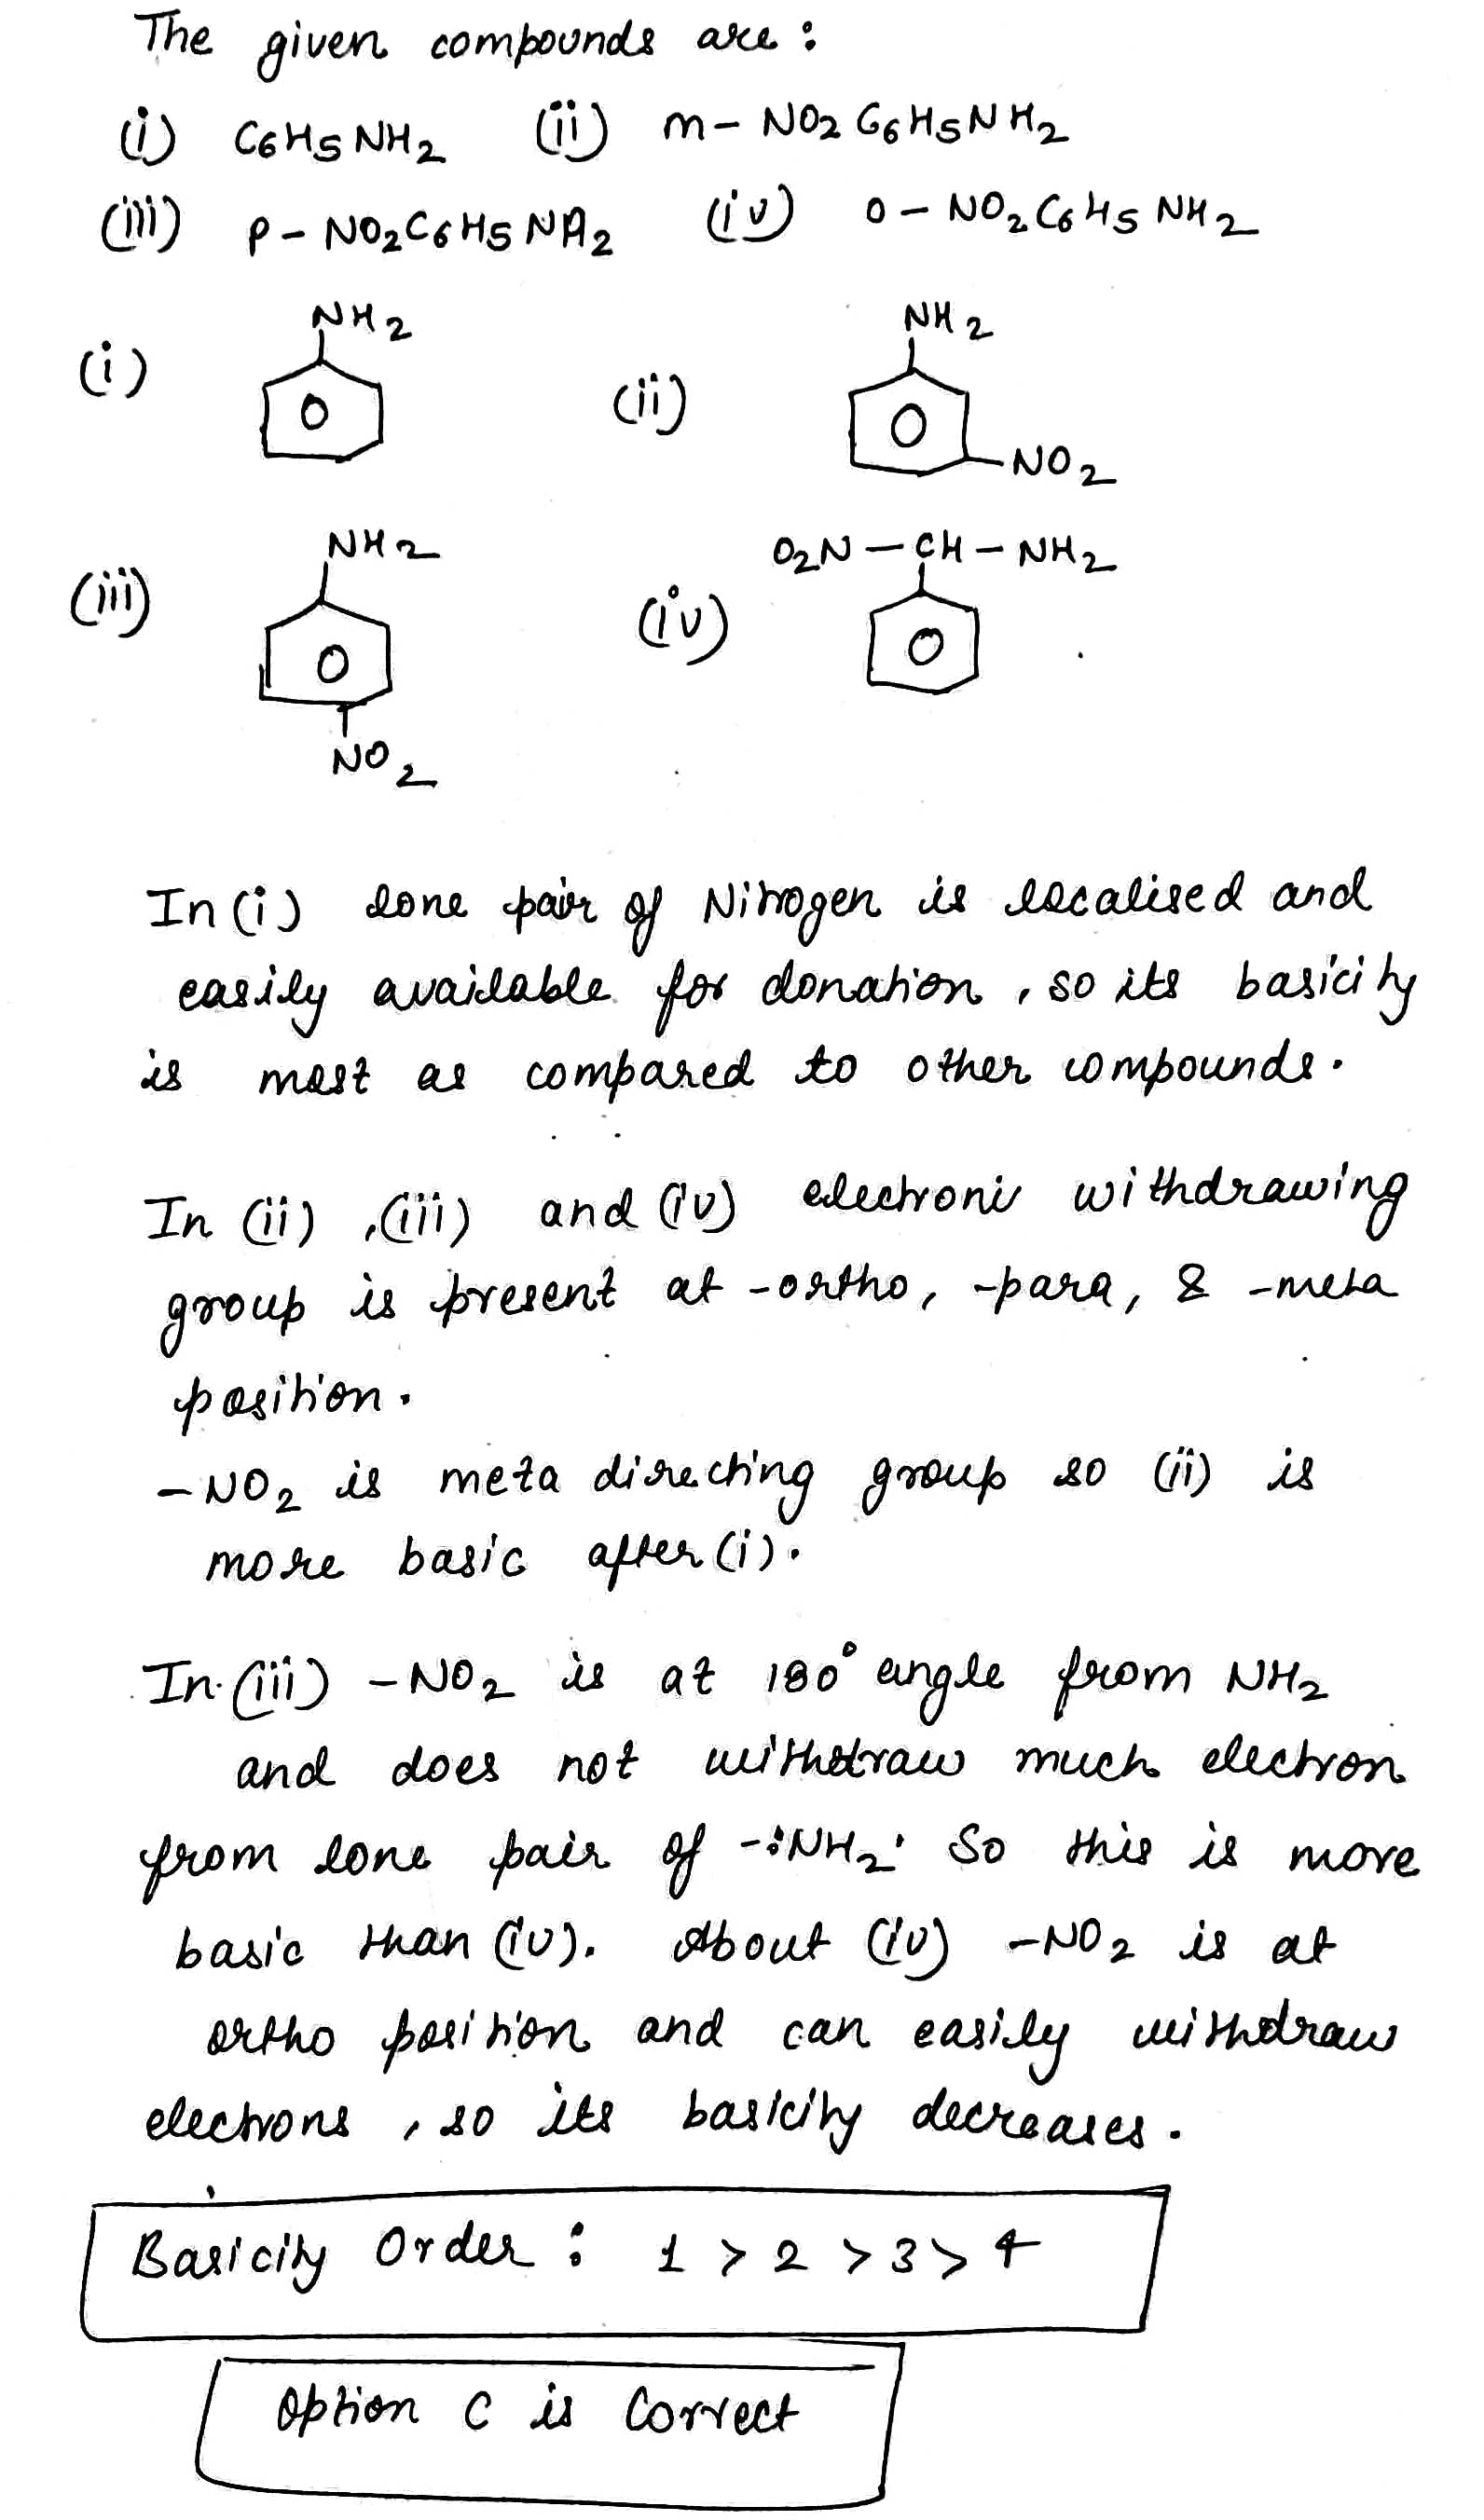 The given compounds are :
(i) C6H5NH2 (ii) m- NO2 C6H5NH2
(iii) p- NO2C6H5NH2 (iv) o- NO2C6H5NH2
(i) NH2 (ii) NH2
NO2
(iii) NH2 (iv) O2N - CH - NH2
NO2
In (i) lone pair of Nitrogen is localised and
easily available for donation, so its basicity
is most as compared to other compounds.
In (ii), (iii) and (iv) electronic withdrawing
group is present at -ortho, -para, & -meta
position.
- NO2 is meta directing group so (ii) is
more basic after (i).
In (iii) - NO2 is at 180° angle from NH2
and does not withdraw much electron
from lone pair of -:NH2. So this is more
basic than (iv). About (iv) -NO2 is at
ortho position and can easily withdraw
electrons, so its basicity decreases.
Basicity Order : 1 > 2 > 3 > 4
Option C is Correct